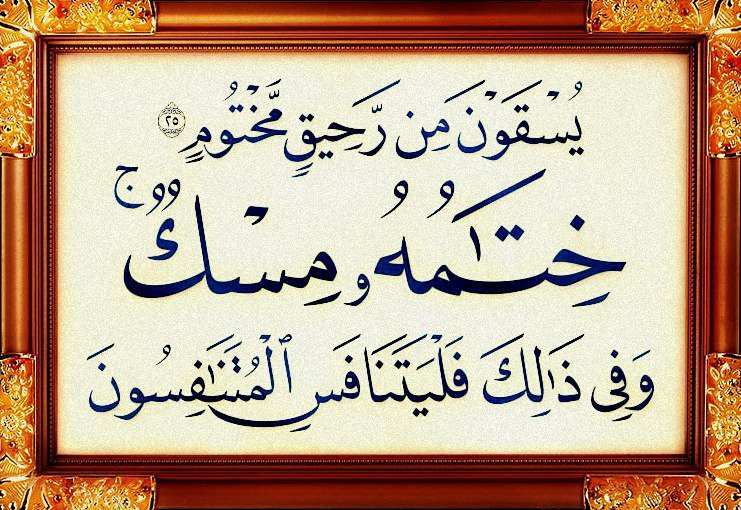 يُسْقَوْنَ مِن رَّحِيقٍ مَّخْتُومٍ ٢٥
خِتَـٰمُهُۥ مِسْكٌ ۚ
وَفِى ذَٰلِكَ فَلْيَتَنَافَسِ ٱلْمُتَنَـٰفِسُونَ